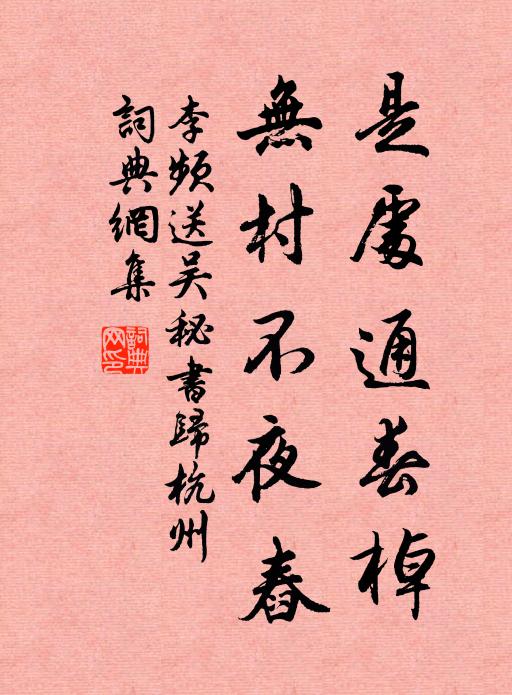 是處通春棹
無村不夜舂
李頻送吴秘書歸杭州
詞典網集
詞典網印